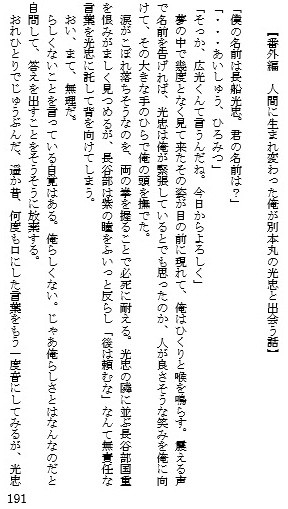 【番外編　人間に生まれ変わった俺が別本丸の光忠と出会う話】
「僕の名前は長船光忠。君の名前は？」
「・・・あいしゅう、ひろみつ」
「そっか、広光くんて言うんだね。今日からよろしく」
夢の中で幾度となく見て来たその姿が目の前に現れて、俺はひくりと喉を鳴らす。震える声
で名前を告げれば、光忠は俺が緊張しているとでも思ったのか、人が良さそうな笑みを俺に向
けて、その大きな手のひらで俺の頭を撫でた。
涙がこぼれ落ちそうなのを、両の拳を握ることで必死に耐える。光忠の隣に並ぶ長谷部国重
を恨みがましく見つめるが、長谷部は紫の瞳をふいっと反らし「後は頼むな」なんて無責任な
言葉を光忠に託して背を向けてしまう。
おい、まて、無理だ。
らしくないことを言っている自覚はある。俺らしくない。じゃあ俺らしさとはなんなのだと
自問して、答えを出すことをそうそうに放棄する。
おれひとりでじゅうぶんだ、遥か昔、何度も口にした言葉をもう一度音にしてみるが、光忠
191